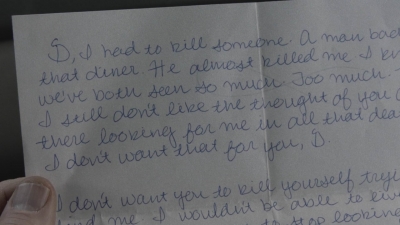 D, I had to kill someone. A man back
that diner. He almost killed me I kn
we've both seen so much. Too much.
I still don't like the thought of you
there looking for me in all that dea
I don't want that for you, D.
I don't want you to kill yourself tryi
find me. I wouldn't be able to live
to stop looking